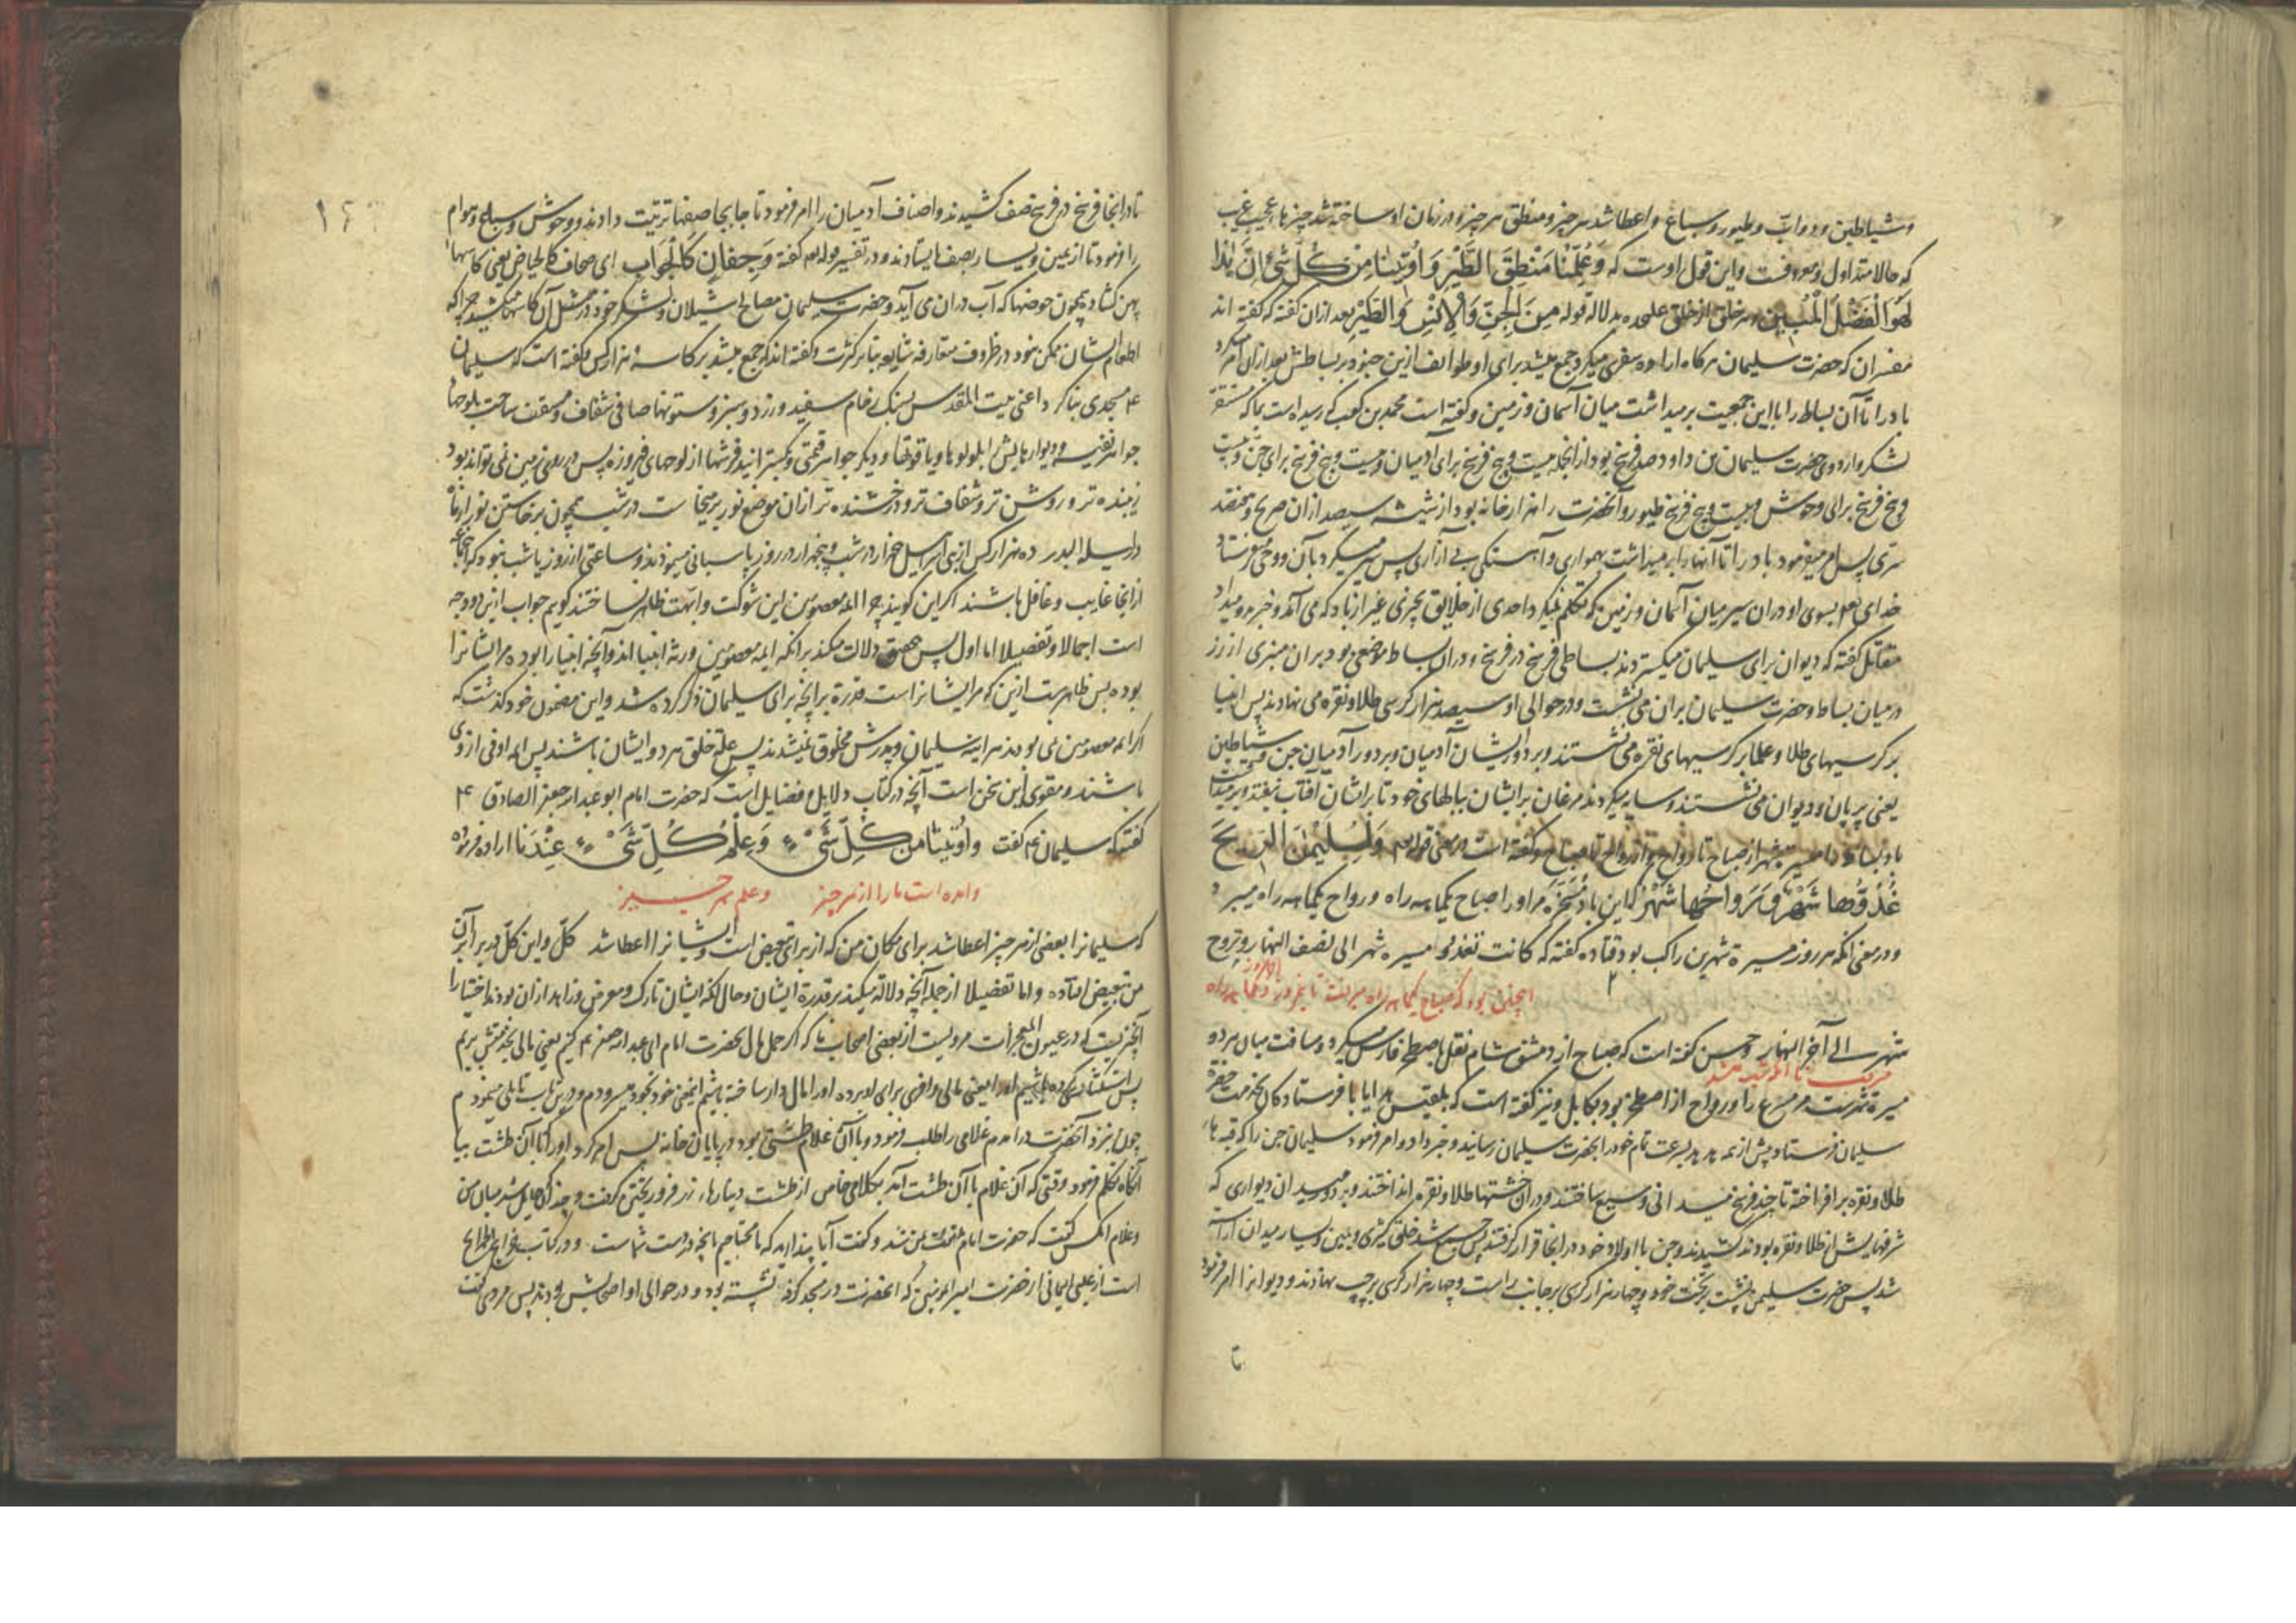 و شیاطین و دواب و طیور و سباع و اعطا شد هر چیز و منطق هر چیز و در زمان او ساخته شد چیزهای عجیب غریب
که حالا متداول و معروفست و این قول اوست که وَعُلِّمْنَا مَنْطِقَ الطَّيْرِ وَاُوتِينَا مِنْ كُلِّ شَيْءٍ اِنَّ هٰذَا
لَهُوَ الْفَضْلُ الْمُبِين هر خلق از خلق علیحده بدلالة قوله مِنَ الْجِنِّ وَالْاِنْسِ وَالطَّيْرِ بعد ازان گفته که گفته اند
مفسران که حضرت سلیمان هرگاه اراده سفری میکرد جمع میشد برای او طوایف ازین جنود بر بساطش بعد ازان امر میکرد
باد را تا آن بساط را با این جمعیت برمیداشت میان آسمان و زمین و گفته است محمد بن کعب که رسیده است بما که
لشکر و اردوی حضرت سلیمان بن داود صد فرسخ بود ازانجمله بیست و پنج فرسخ برای آدمیان و بیست و پنج فرسخ برای جن و بیست
و پنج فرسخ برای وحوش و بیست و پنج فرسخ طیور و آنحضرت را هزار خانه بود از شیشه سیصد ازان صریح و هفتصد
سری پس امر میفرمود باد را تا آنها را برمیداشت بهمواری و آهستگی بی آزاری پس سیر میکرد بآن و وحی میفرستاد
خدای بسوی او دران سیر میان آسمان و زمین که تکلم نمیکرد احدی از خلایق بچیزی غیر از باد که می آمد و خبر میداد
مقاتل گفته که دیوان برای سلیمان میگستردند بساطی فرسخ در فرسخ و دران بساط موضعی بود بران منبری از زر
در میان بساط و حضرت سلیمان بران می نشست و در حوالی او سیصد هزار کرسی طلا و نقره می نهادند پس انبیا
بر کرسیهای طلا و علما بر کرسیهای نقره می نشستند و بر دور ایشان آدمیان و بر دور آدمیان جن و شیاطین
یعنی پریان و دیوان می نشستند و سایه میکردند مرغان بر ایشان ببالهای خود تا بر ایشان آفتاب نیفتد و برمیداشت
باد بساط را مسیره شهر از صباح تا رواح و از رواح تا صباح و گفته است در معنی قوله وَلِسُلَيْمٰنَ الرِّيحَ
غُدُوُّهَا شَهْرٌ وَرَوَاحُهَا شَهْرٌ که این باد مسخره مر او را صباح یکماهه راه و رواح یکماهه راه میبرد
و در معنی آنکه هر روز مسیرة شهرین راکب بود قتاده گفته که کانت تغدو مسیرة شهر الی نصف النهار و تروح
اینچنین بود که صباح یکماهه راه میرفت تا نیمروز و یکماهه راه
شهر الی آخر النهار و حسن گفته است که صباح از دمشق شام نقل باصطخر فارس میکرد و مسافت میان هر دو
مسیرة شهرست مر مسرع را و رواح از اصطخر بود بکابل و نیز گفته است که بلقیس هدایا با فرستادگان بخدمت حضرة
سلیمان فرستاد پیش از همه هدهد بسرعت تمام خود را بحضرت سلیمان رسانید و خبر داد و امر فرمود سلیمان جن را که
طلا و نقره برافراخته تا چند فرسخ میدانی وسیع ساختند و دران خشتهای طلا و نقره انداختند و بر دور میدان دیواری که
شرفهایش از طلا و نقره بودند کشیدند و جن با اولاد خود در انجا قرار گرفتند پس جمع شد خلق کثیری و یمین و یسار میدان
شد پس حضرت سلیمن نشست بر تخت خود و چهار هزار کرسی بر جانب راست و چهار هزار کرسی بر چپ نهادند و دیوان را امر فرمود
تا در انجا فرسخ در فرسخ صف کشیدند و اصناف آدمیان را امر فرمود تا جابجا صفها ترتیب دادند و وحوش و سباع و هوام
را فرمود تا از یمین و یسار بصف ایستادند و در تفسیر قوله گفته وَجِفَانٍ كَالْجَوَابِ ای صحاف کالحیاض یعنی کاسهای
پهن گشاد همچون حوضها که آب دران می آید و حضرت سلیمان مصالح شیلان لشکر خود در مثل آن کاسها میکشید چرا که
اطعام ایشان ممکن نبود در ظروف متعارفه بنابر کثرت و گفته اند که جمع میشد بر کاسه هزار کس و گفته است که سلیمان
مسجدی بنا کرد اعنی بیت المقدس بسنگ رخام سفید و زرد و سبز و ستونهای صافی شفاف و مسقف ساخت بلوحهای
جواهر نفیسه و دیوارهایش بلولوها و یاقوتها و دیگر جواهر قیمتی و گسترانید فرشها از لوحهای فیروزه پس در روی زمین نمی تواند بود
زیبنده تر و روشن تر و شفاف تر و درخشنده تر ازان موضع نور برمیخاست در شب همچون برخاستن نور از ماه
در لیلة البدر ده هزار کس از بنی اسرائیل در شب و پنجهزار در روز پاسبانی مینمودند و ساعتی از روز یا شب نبود که
ازانجا غایب و غافل باشند اگر این گویند چرا ائمه معصومین این شوکت و ابهت ظاهر نساختند گویم جواب این دو وجه
است اجمالا و تفصیلا اما اول پس دلالت میکند بر انکه ایمه معصومین ورثه انبیا اند و آنچه انبیا را بوده مر ایشانرا
بوده پس ظاهرست ازین که مر ایشانراست قدرة بر انچه برای سلیمان ذکر کرده شد و این مضمون خود گذشت که
اگر ائمه معصومین نمی بودند هر آینه سلیمان و پدرش مخلوق نمیشدند پس علة خلق هر دو ایشان باشند پس ائمه اوفی از وی
باشند و مقوی این سخن است آنچه در کتاب دلایل و فضایل است که حضرت امام ابو عبد الله جعفر الصادق ع
گفته که سلیمان گفت وَاُوتِينَا مِنْ كُلِّ شَيْءٍ وَعِلْمُ كُلِّ شَيْءٍ عِنْدَنَا اراده فرموده
داده است ما را از هر چیز و علم هر چیز
که سلیمانرا بعضی از هر چیز اعطا شد برای مکان من که از برای تبعیض است و ایشانرا اعطا شد کل و این کل در برابر آن
من تبعیض افتاده و اما تفصیلا از جمله آنچه دلالة میکند بر قدرة ایشان و حال آنکه ایشان تارک و معرض و زاهد ازان بودند اختیارا
آنچنزیست که در عیون المعجزات مرویست از بعضی اصحاب ما که اگر حمل مال بحضرت امام ابی عبد الله جعفر ع کنیم یعنی مالی بخدمتش بریم
چون بنزد آنحضرت درامدم غلامی را طلب فرمود و با آن غلام طشتی بود در پایان خانه پس امر کرد او را تا آن طشت بیا
آنگاه تکلم فرمود وقتی که آن غلام با آن طشت آمد بکلامی خاص از طشت دینارهای زر فرو ریختن گرفت و چندان حایل شد میان من
و غلام انکس گفت که حضرت امام ملتفت بمن شد و گفت آیا پندارید که ما محتاجیم بانچه در دست شماست و در کتاب خرایج الجرایح
است از علمی ایمانی از حضرت امیر المومنین که آنحضرت در مسجد کوفه نشسته بود و در حوالی او اصحابش بودند پس مردی گفت